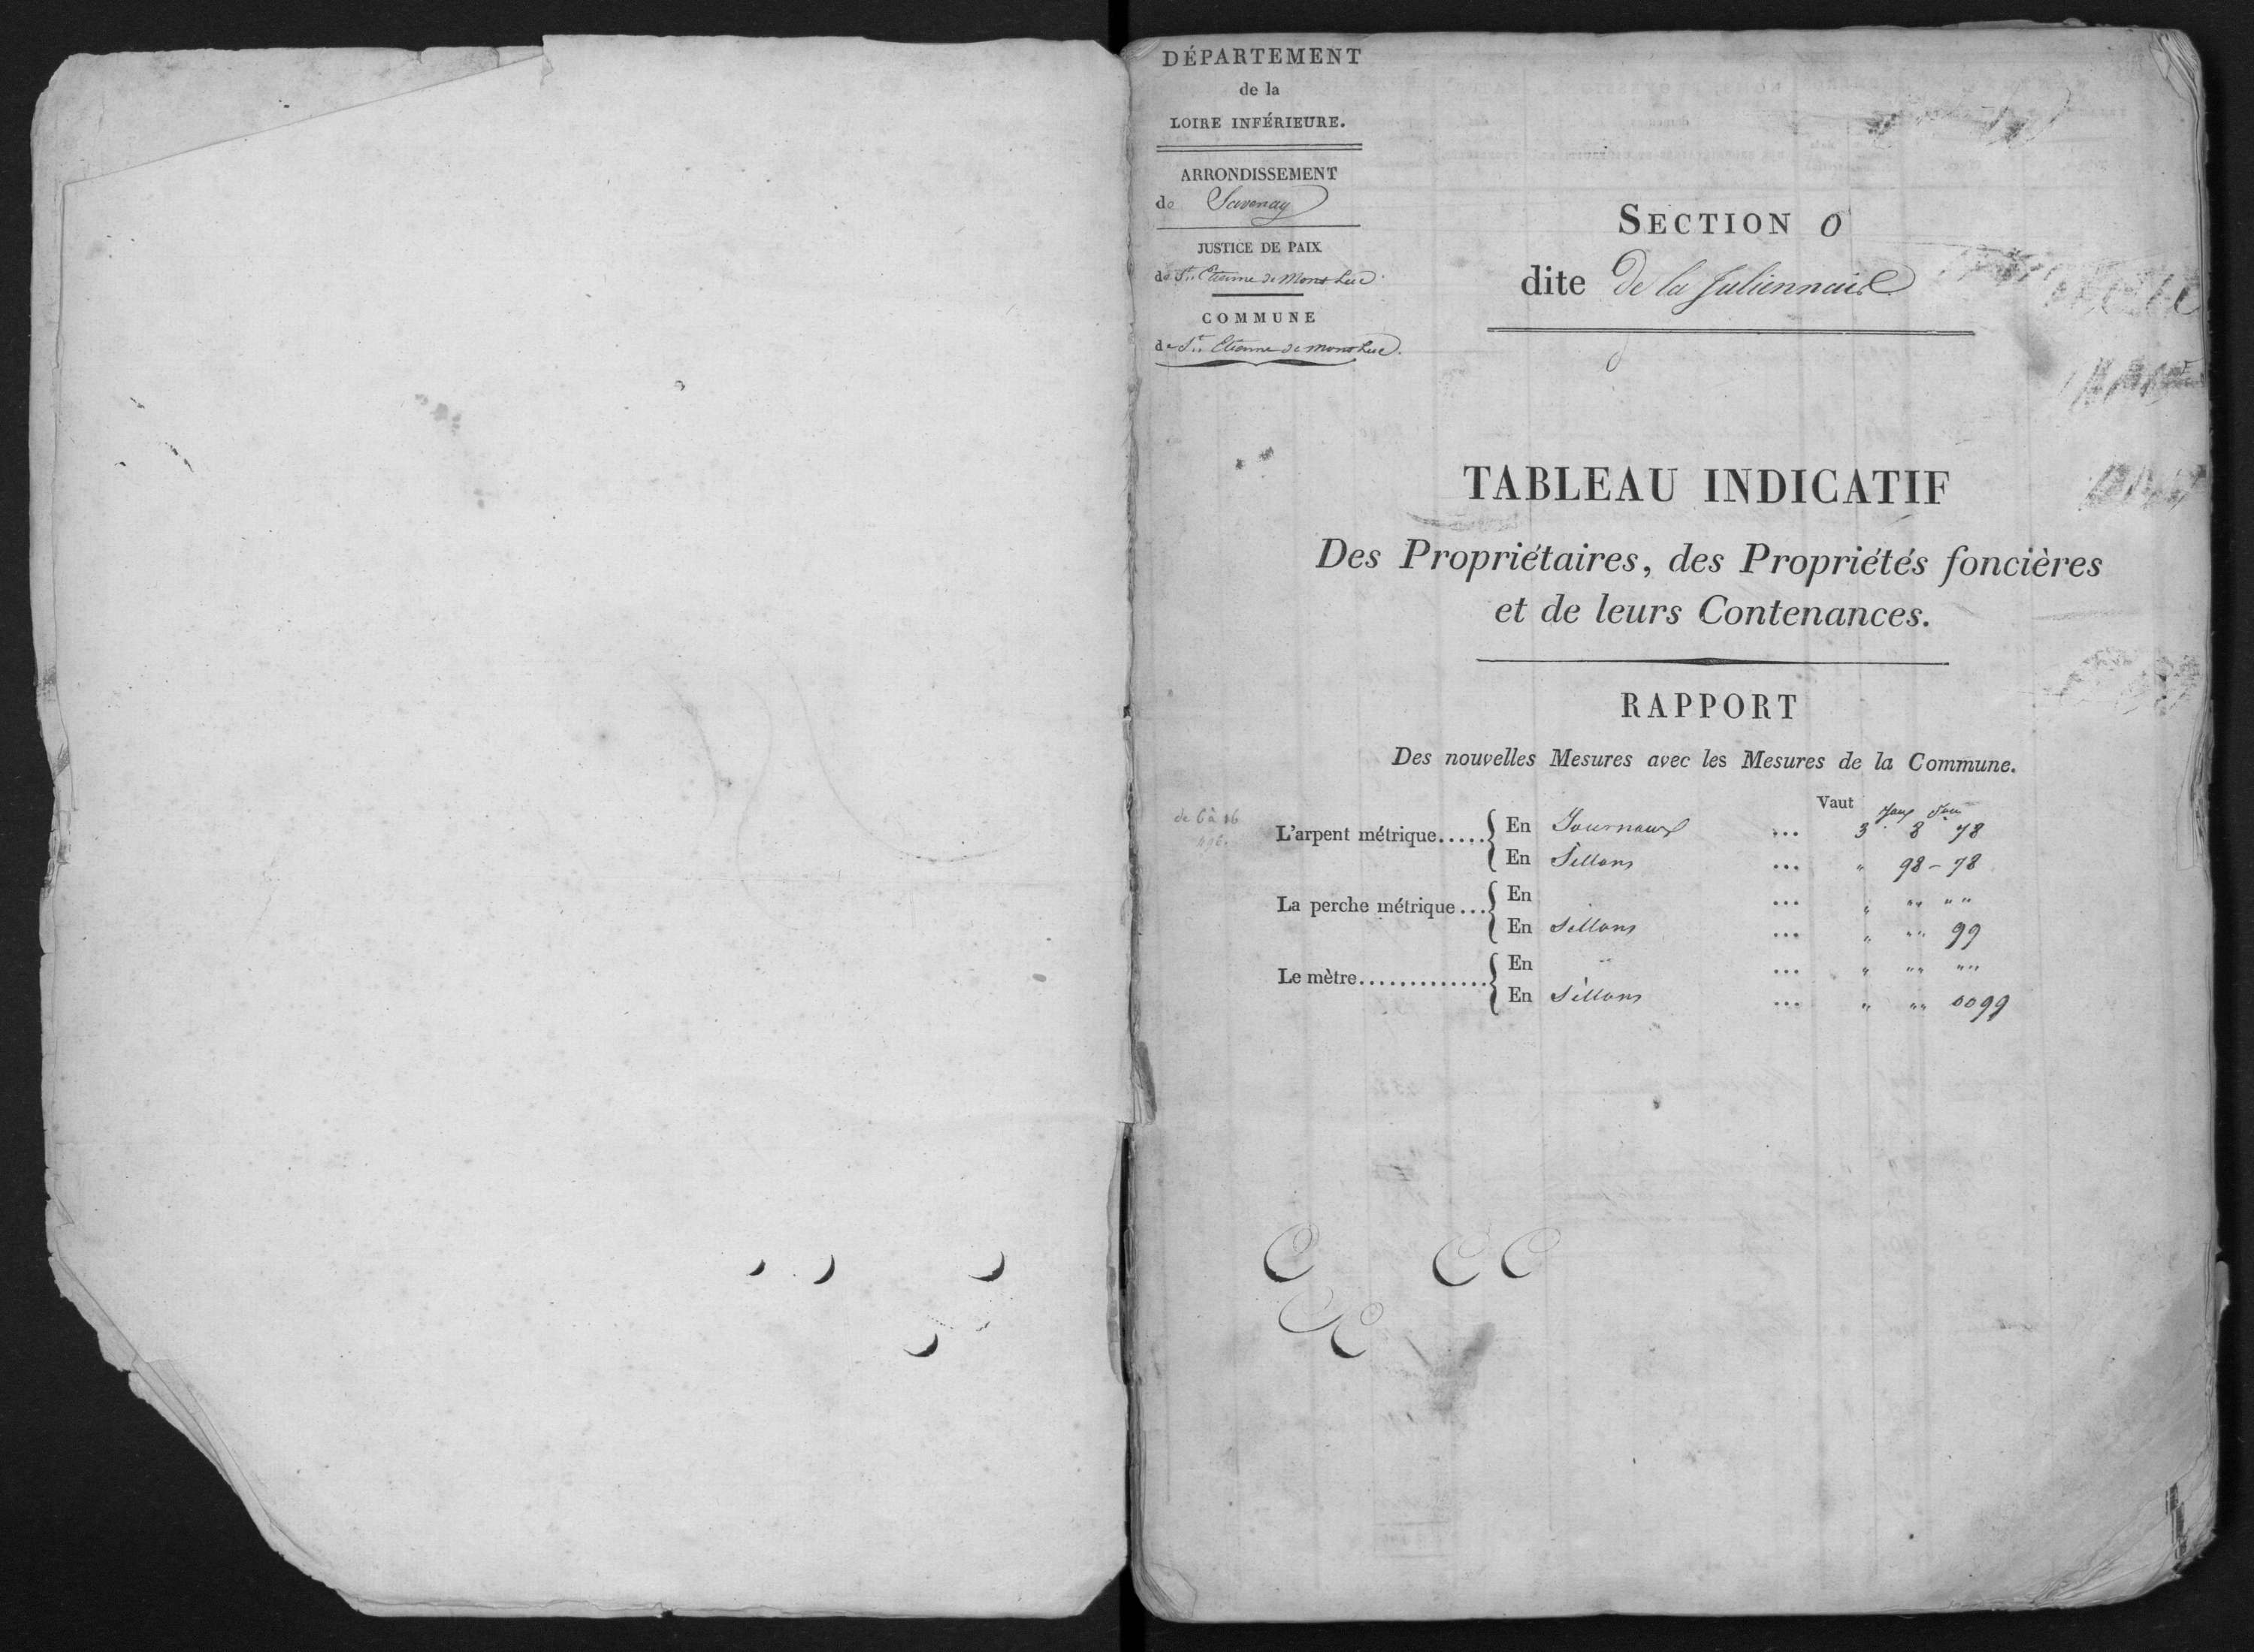 DÉPARTEMENT
de la
LOIRE INFÉRIEURE.
ARRONDISSEMENT
de Savenay
JUSTICE DE PAIX
de St. Etienne de Mont Luc
COMMUNE
de St. Etienne de mont Luc.
SECTION O
dite De la Juliennais
TABLEAU INDICATIF
Des Propriétaires, des Propriétés foncières
et de leurs Contenances.
RAPPORT
Des nouvelles Mesures avec les Mesures de la Commune.
Vaut
de 6 à 16
L'arpent métrique..... En Journaux ... 3 8 78
En Sillons ... " 98 - 78
La perche métrique... En ... " "" ""
En Sillons ... " "" 99
Le mètre............. En ... " "" ""
En Sillons ... " "" 0099